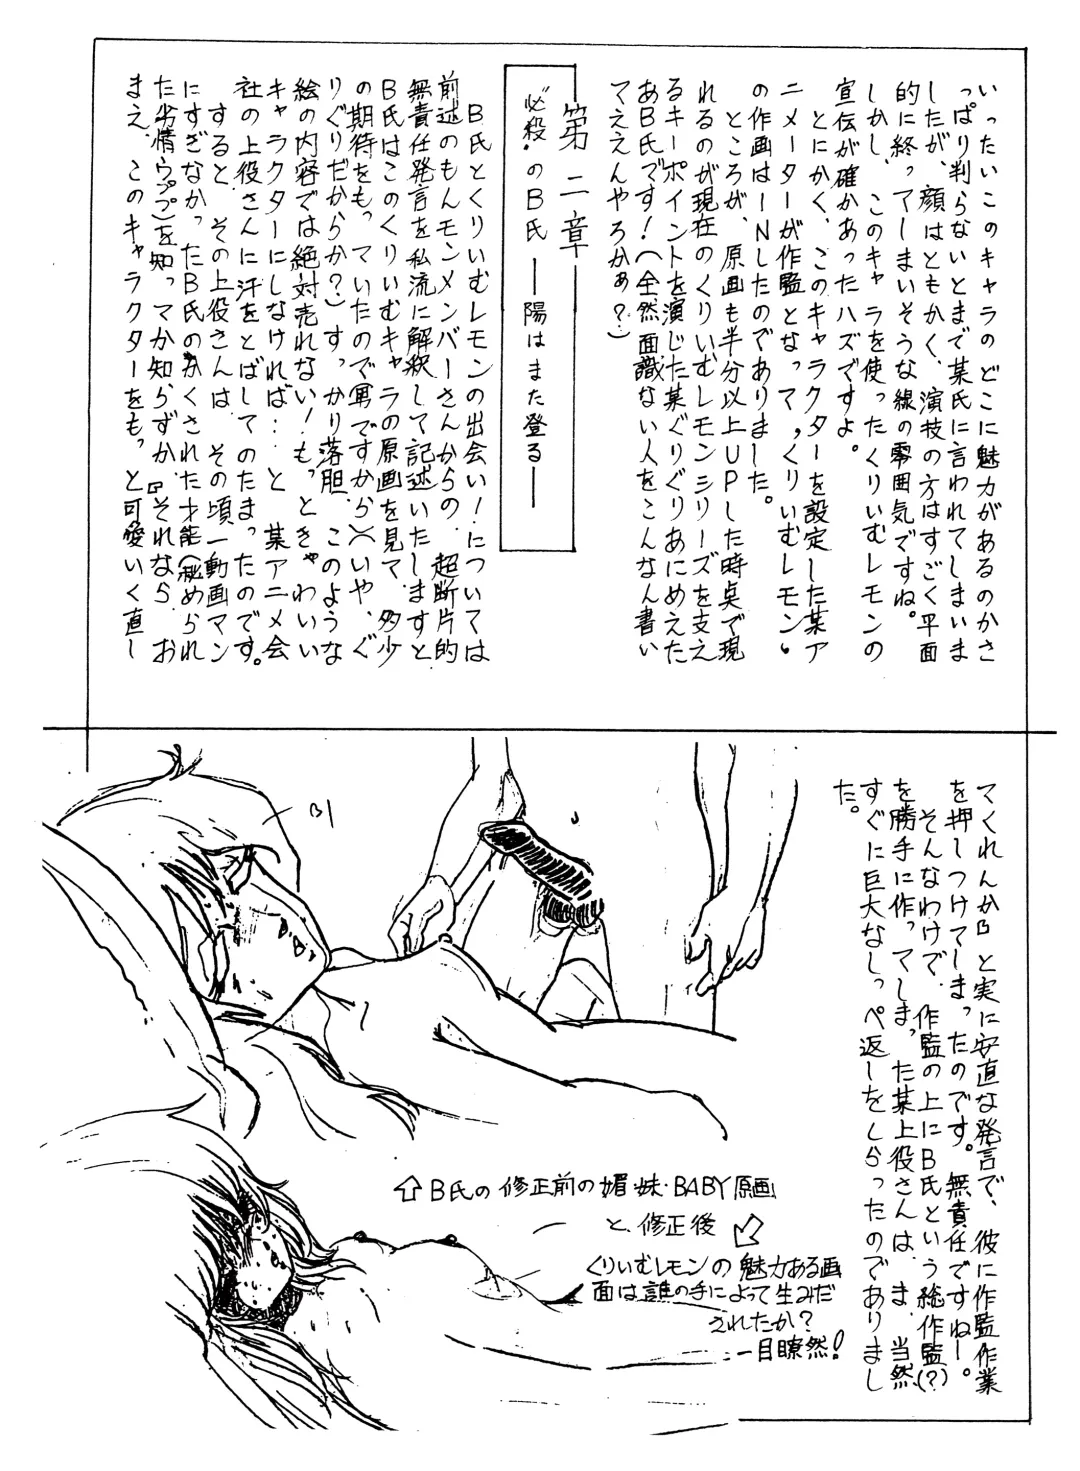 いったいこのキャラのどこに魅力があるのかさ
っぱり判らないとまで某氏に言われてしまいま
したが、顔はともかく、演技の方はすごく平面
的に終ってしまいそうな線の雰囲気ですね。
しかし、このキャラを使ったくりいむレモンの
宣伝が確かあったハズですよ。
とにかく、このキャラクターを設定した某ア
ニメーターが作監となって、くりいむレモン、
の作画はINしたのでありました。
ところが、原画も半分以上UPした時点で現
れるのが現在のくりいむレモンシリーズを支え
るキーポイントを演じた某ぐりぐりあにめえた
あB氏です！（全然面識ない人をこんなん書い
てええんやろかぁ？）
第二章
“必殺”のB氏 ―陽はまた登る―
B氏とくりいむレモンの出会い！については
前述のもんモンメンバーさんからの、超断片的
無責任発言を私流に解釈して記述いたしますと
B氏はこのくりいむキャラの原画を見て、多少
の期待をもっていたので（男ですから）（いや、ぐ
りぐりだからか？）すっかり落胆、このような
絵の内容では絶対売れない！もっときゃわいい
キャラクターにしなければ…と 某アニメ会
社の上役さんに汗をとばしてのたまったのです。
すると、その上役さんは、その頃一動画マン
にすぎなかったB氏のかくされた才能（秘められ
た劣情ウププ）を知ってか知らずか、『それなら、お
まえ、このキャラクターをもっと可愛いく直し
てくれんか』と実に安直な発言で、彼に作監作業
を押しつけてしまったのです。無責任ですねー。
そんなわけで、作監の上にB氏という総作監(?)
を勝手に作ってしまった某上役さんは、ま、当然
すぐに巨大なしっぺ返しをくらったのでありまし
た。
⇧B氏の修正前の媚妹・BABY原画
と、修正後
くりいむレモンの魅力ある画
面は誰の手によって生みだ
されたか？
一目瞭然！